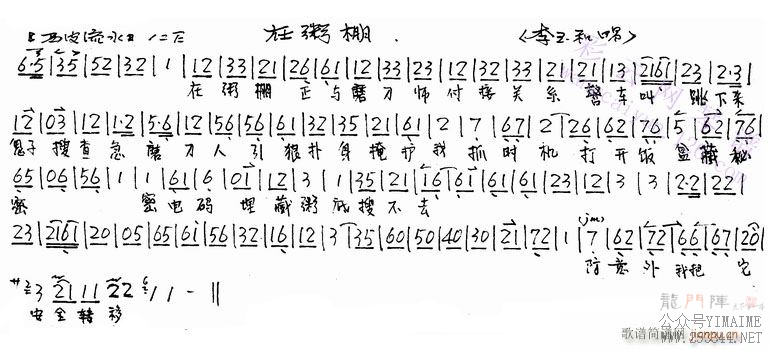 【西皮流水】 1=E 在粥棚 《李玉和唱》
6·5|35|52|32|1|12|33|21|26|61|12|33|23|12|32|33|21|21|13|2161|23|2·3|
在粥棚正与磨刀师付接关系警车叫跳下来
12|03|12|1·2|5·6|12|56|56|61|32|35|21|61|2|7|67|2|26|62|76|5|62|76|
鬼子搜查急磨刀人引狼扑身掩护我抓时机打开饭盒藏秘
65|06|56|1|1|61|6|01|12|3|1|35|21|16|61|61|61|23|12|3|3|2·2|22|
密密电码埋藏粥底搜不去
23|2161|20|05|65|61|56|32|16|12|3|35|60|50|40|30|21|72|1|7|62|72|66|67|20|
防意外我把它
3 21 11 22 11-‖
安全转移
龍門陣
公众号YIMAIME
歌谱简谱网 jianpu.cn
www.255844.NET